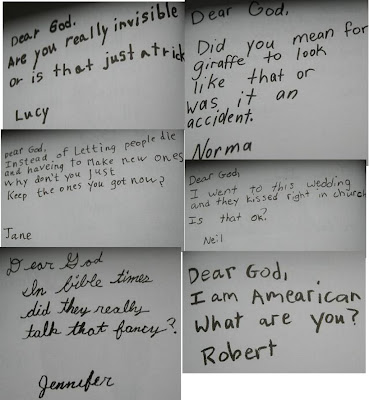 Dear God.
Are you really invisible
or is that just a trick
Lucy
Dear God,
Did you mean for
giraffe to look
like that or
was it an
accident.
Norma
Dear God,
Instead of Letting people die
and haveing to Make new ones
why don't you Just
Keep the ones you got now?
Jane
Dear God,
I went to this wedding
and they kissed right in church
Is that ok?
Neil
Dear God
In bible times
did they really
talk that fancy?
Jennifer
Dear God,
I am Amearican
What are you?
Robert